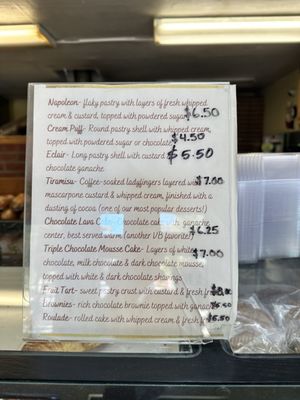 Napoleon- flaky pastry with layers of fresh whipped
cream & custard, topped with powdered sugar $6.50
Cream Puff- Round pastry shell with whipped cream,
topped with powdered sugar or chocolate $4.50
Eclair- Long pastry shell with custard $5.50
chocolate ganache
Tiramisu- Coffee-soaked ladyfingers layered with $7.00
mascarpone custard & whipped cream, finished with a
dusting of cocoa (one of our most popular desserts!)
Chocolate Lava chocolate ganache
center, best served warm (another VB favorite!) $6.25
Triple Chocolate Mousse Cake- Layers of white $7.00
chocolate, milk chocolate & dark chocolate mousse,
topped with white & dark chocolate shavings
Fruit Tart- sweet pastry crust with custard & fresh
Brownies- rich chocolate brownie topped with
Roulade- rolled cake with whipped cream & fresh $5.50